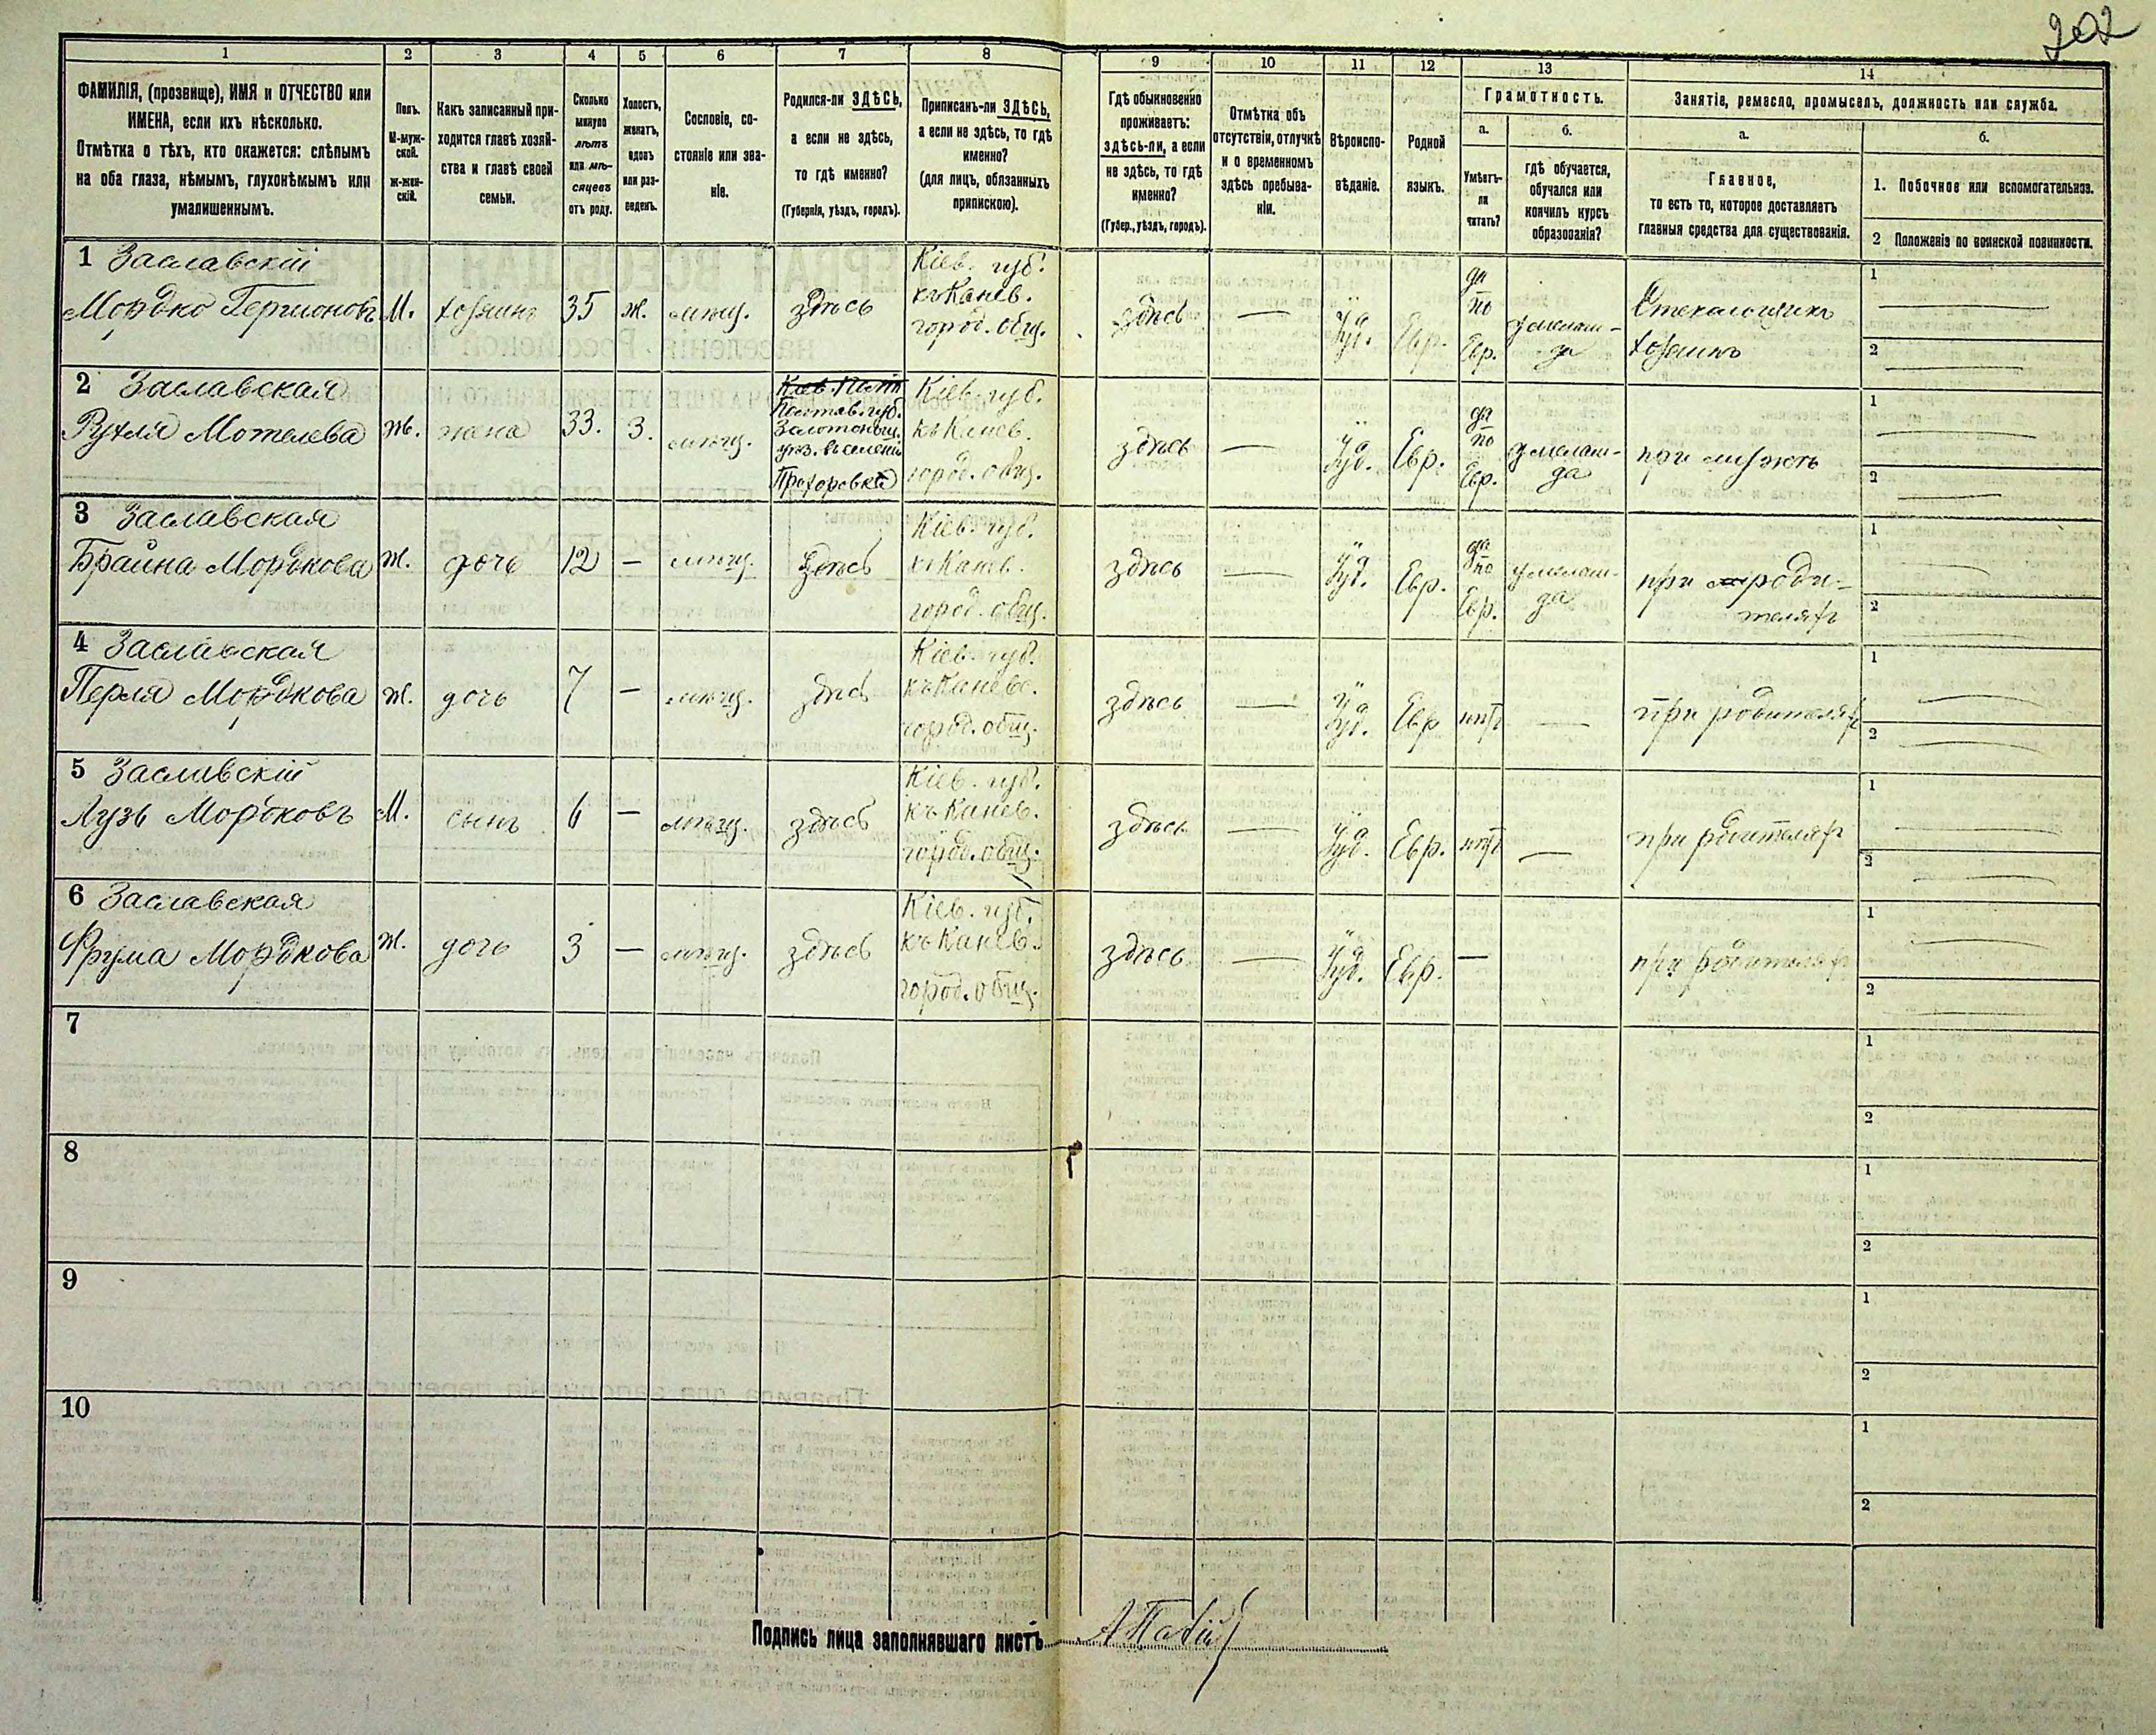 202
1 2 3 4 5 6 7 8 9 10 11 12 13 14
ФАМИЛІЯ, (прозвище), ИМЯ и ОТЧЕСТВО или
ИМЕНА, если ихъ нѣсколько.
Отмѣтка о тѣхъ, кто окажется: слѣпымъ
на оба глаза, нѣмымъ, глухонѣмымъ или
умалишеннымъ.
Полъ.
М-муж-
ской.
ж-жен-
скій.
Какъ записанный при-
ходится главѣ хозяй-
ства и главѣ своей
семьи.
Сколько
минуло
лѣтъ
или мѣ-
сяцевъ
отъ роду.
Холостъ,
женатъ,
вдовъ
или раз-
веденъ.
Сословіе, со-
стояніе или зва-
ніе.
Родился-ли ЗДѢСЬ,
а если не здѣсь,
то гдѣ именно?
(Губернія, уѣздъ, городъ).
Приписанъ-ли ЗДѢСЬ,
а если не здѣсь, то гдѣ
именно?
(для лицъ, обязанныхъ
припискою).
Гдѣ обыкновенно
проживаетъ:
здѣсь-ли, а если
не здѣсь, то гдѣ
именно?
(Губер., уѣздъ, городъ).
Отмѣтка объ
отсутствіи, отлучкѣ
и о временномъ
здѣсь пребыва-
ніи.
Вѣроиспо-
вѣданіе.
Родной
языкъ.
Грамотность.
а.
Умѣетъ-
ли
читать?
б.
гдѣ обучается,
обучался или
кончилъ курсъ
образованія?
Занятіе, ремесло, промыселъ, должность или служба.
а.
Главное,
то есть то, которое доставляетъ
главныя средства для существованія.
б.
1. Побочное или вспомогательное.
2 Положеніе по воинской повинности.
1 Заславскій
Мордко Гершоновъ
М.
хозяинъ
35
ж.
мѣщ.
здѣсь
Кіев. губ.
къ Канев.
город. общ.
здѣсь
—
Іуд.
Евр.
да
по
Евр.
у мелам-
да
Стекольщикъ
хозяинъ
1
2
2 Заславская
Рухля Мотелева
Ж.
жена
33.
З.
мѣщ.
Полтав. губ.
Золотонош.
уѣз. въ селеніи
Прохоровкѣ
Кіев. губ.
къ Канев.
город. общ.
здѣсь
—
Іуд.
Евр.
да
по
Евр.
у мелам-
да
при мужѣ
1
2
3 Заславская
Брайна Мордкова
Ж.
дочь
12
—
мѣщ.
здѣсь
Кіев. губ.
къ Канев.
город. общ.
здѣсь
—
Іуд.
Евр.
да
по
Евр.
у мелам-
да
при роди-
теляхъ
1
2
4 Заславская
Перля Мордкова
Ж.
дочь
7
—
мѣщ.
здѣсь
Кіев. губ.
къ Канев.
город. общ.
здѣсь
—
Іуд.
Евр
нѣтъ
—
при родителяхъ
1
2
5 Заславскій
Лузь Мордковъ
М.
сынъ
6
—
мѣщ.
здѣсь
Кіев. губ.
къ Канев.
город. общ.
здѣсь
—
Іуд.
Евр.
нѣтъ
—
при родителяхъ
1
2
6 Заславская
Фрума Мордкова
Ж.
дочь
3
—
мѣщ.
здѣсь
Кіев. губ.
къ Канев.
город. общ.
здѣсь
—
Іуд.
Евр.
—
при родителяхъ
1
2
7
1
2
8
1
2
9
1
2
10
1
2
Подпись лица заполнявшаго листъ